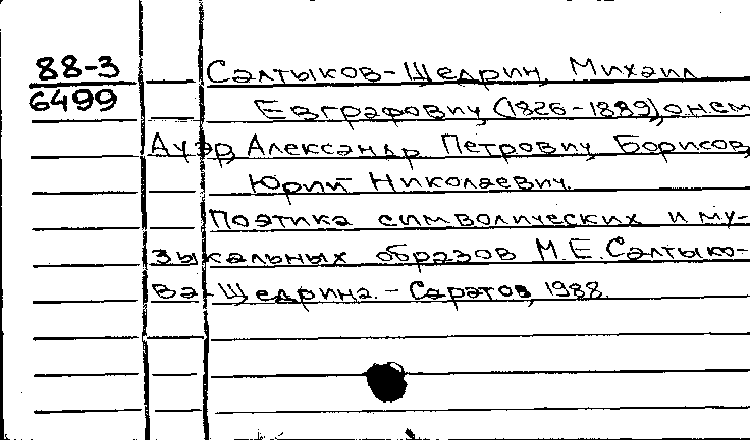 88-3
6499
Салтыков-Щедрин, Михаил
Евграфович, (1826-1889), о нем
Ауэр, Александр Петрович, Борисов,
Юрий Николаевич.
Поэтика символических и му-
зыкальных образов М.Е.Салтыко-
ва-Щедрина. - Саратов, 1988.